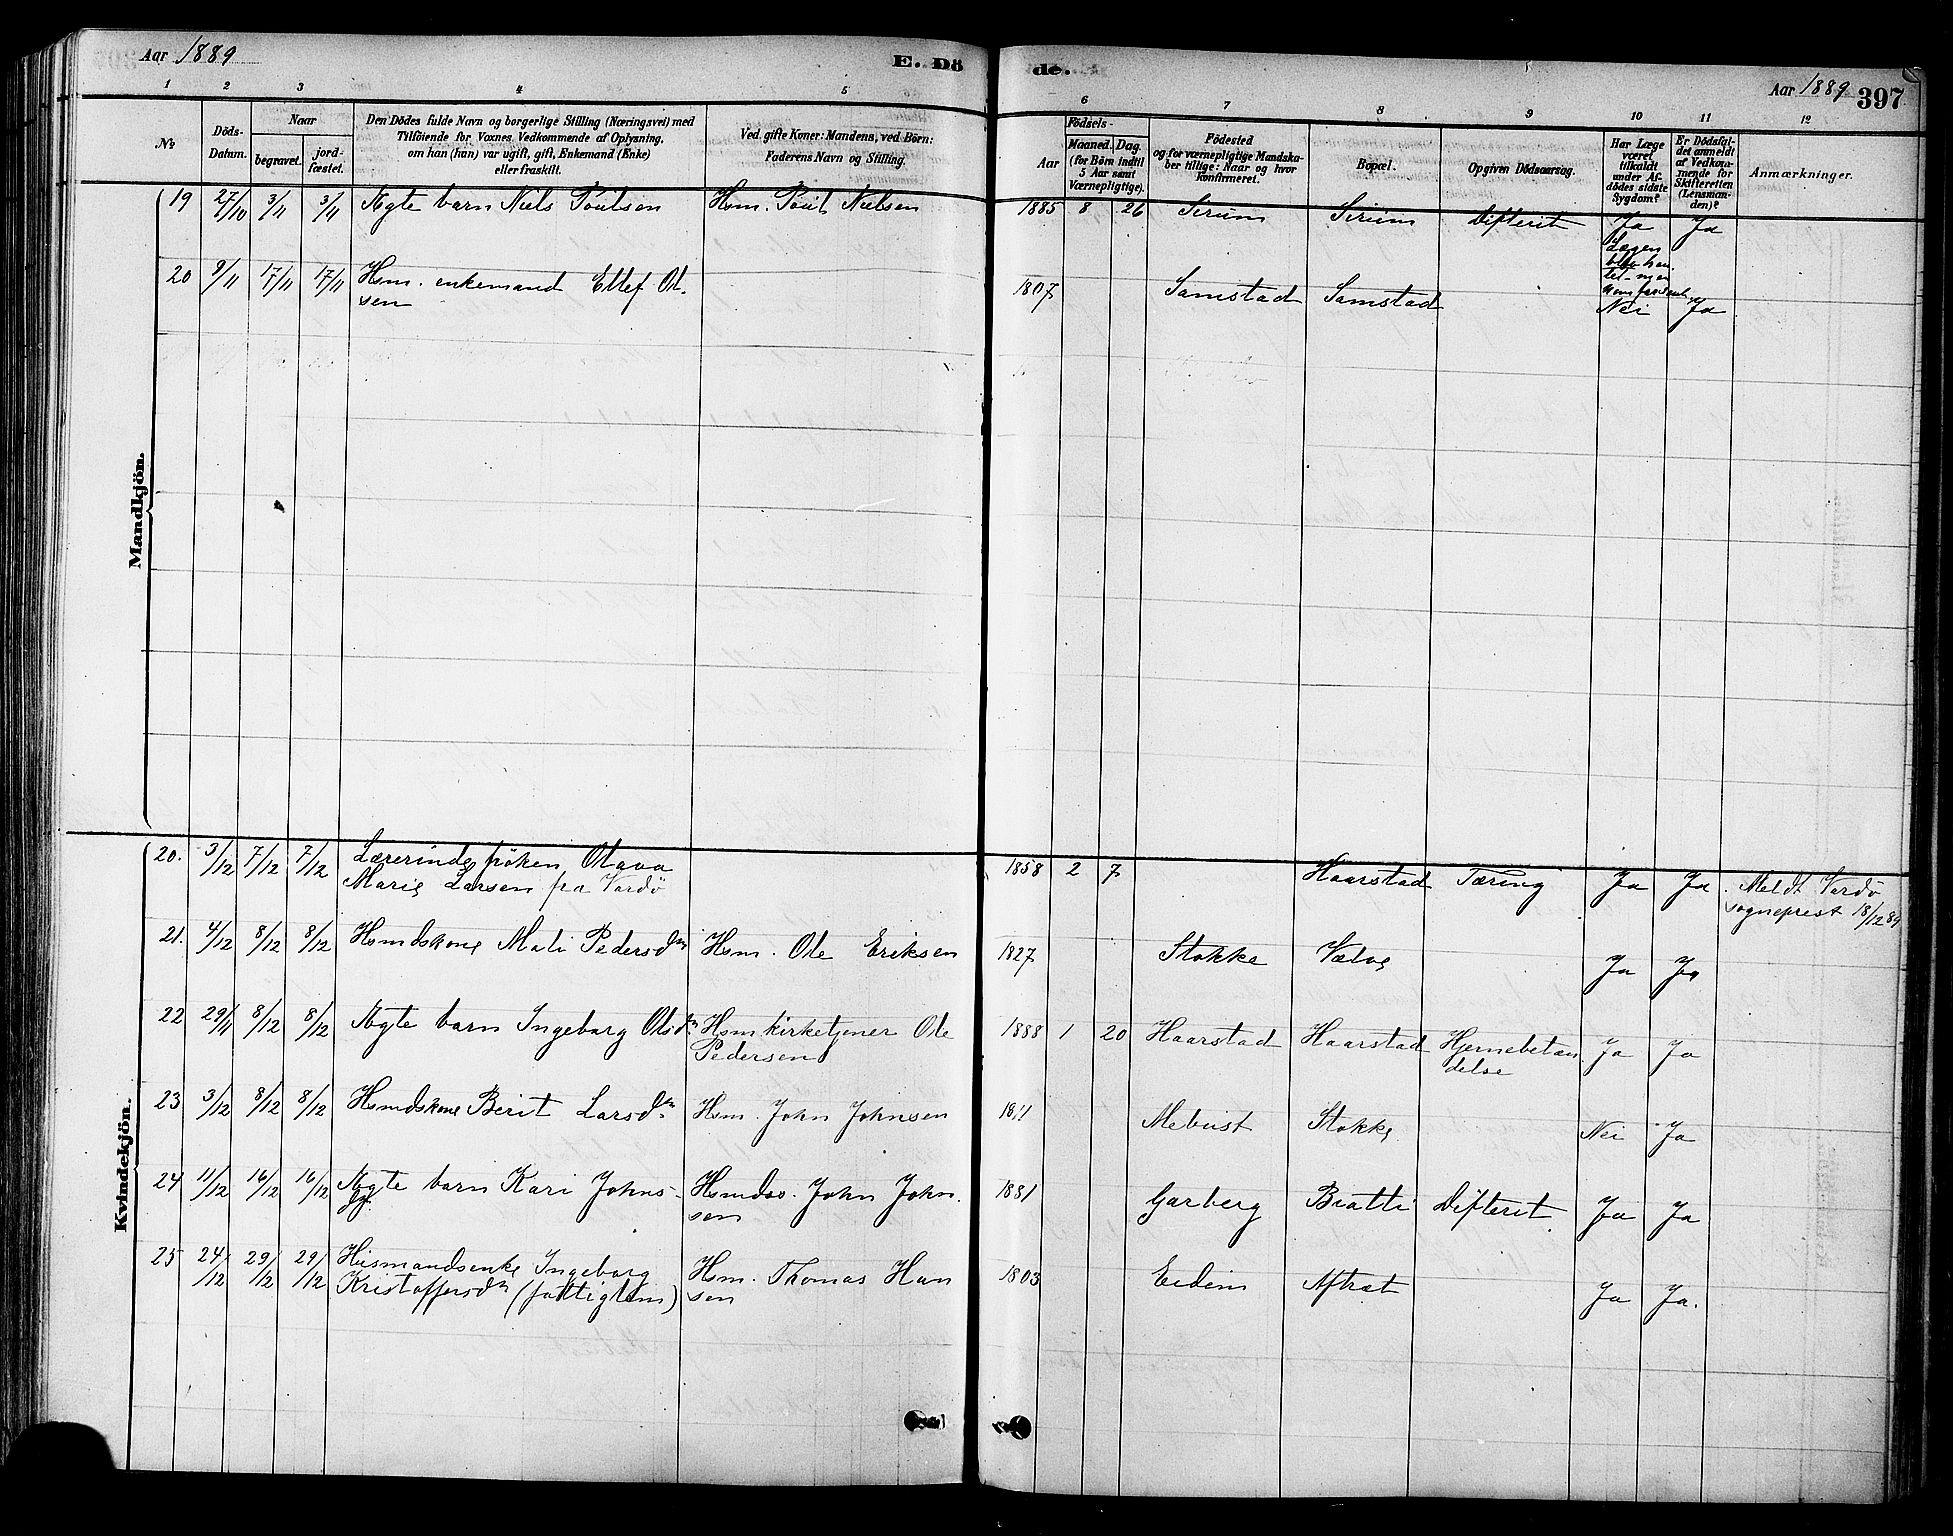 Aar 1889
E. Dö
de.
Aar 1889 397
1 2 3 4 5 6 7 8 9 10 11 12
No
Döds-
Datum.
Naar
begravet.
jord-
fæstet.
Den Dödes fulde Navn og borgerlige Stilling (Næringsvei) med
Tilföiende for Voxnes Vedkommende af Oplysning,
om han (hun) var ugift, gift, Enkemand (Enke)
eller fraskilt.
Ved gifte Koner: Mandens, ved Börn:
Faderens Navn og Stilling.
Födsels-
Aar
Maaned. Dag.
(for Börn indtil
5 Aar samt
Værnepligtige).
Födested
og for værnepligtige Mandska-
ber tillige: Naar og hvor
konfirmeret.
Bopæl.
Opgiven Dödsaarsag.
Har Læge
været
tilkaldt
under Af-
dödes sidste
Sygdom?
Er Dödsfal-
det anmeldt
af Vedkom-
mende for
Skifteretten
(Lensman-
den)?
Anmærkninger.
Mandkjön.
19 27/10 3/11 3/11 Ægte barn Niels Poulsen Hsm. Poul Nielsen 1885 8 26 Serum Serum Difterit Ja Ja
Lægen
20 9/11 17/11 17/11 Hsm. enkemand Ellef Ol-
sen 1807 Samstad Samstad Nei Ja
Kvindekjön.
20. 3/12 7/12 7/12 Lærerinde fröken Olava
Marie Larsen fra Vardö 1858 2 7 Haarstad Tæring Ja Ja Meldt Vardö
sogneprest 18/12 89
21. 4/12 8/12 8/12 Hsmdskone Mali Pedersdr Hsm. Ole Eriksen 1827 Stokke Vælve Ja Ja
22 29/11 8/12 8/12 Ægte barn Ingeborg Olsdr Hsm kirketjener Ole
Pedersen 1888 1 20 Haarstad Haarstad Hjernebetæn
delse Ja Ja
23 3/12 8/12 8/12 Hsmdskone Berit Larsdr Hsm. John Johnsen 1811 Mebust Stokke Nei Ja
24 11/12 16/12 16/12 Ægte barn Kari Johns-
dr Hsmdss. John John-
sen 1881 Garberg Bratli Difterit Ja Ja
25 24/12 29/12 29/12 Husmandsenke Ingeborg
Kristoffersdr (fattiglem) Hsm. Thomas Han
sen 1803 Eidem Aftræt Ja Ja.